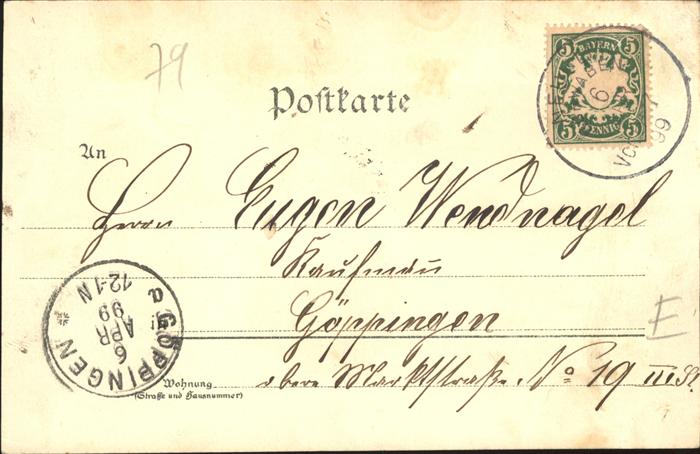 79
5 BAYERN 5
5 PFENNIG 5
6
99
Postkarte
An
Herrn Eugen Wendnagel
Kaufmann
Göppingen
GÖPPINGEN
6
APR
99
12-1 N
E
Wohnung
(Straße und Hausnummer)
obere Marktstraße No 19 III St.